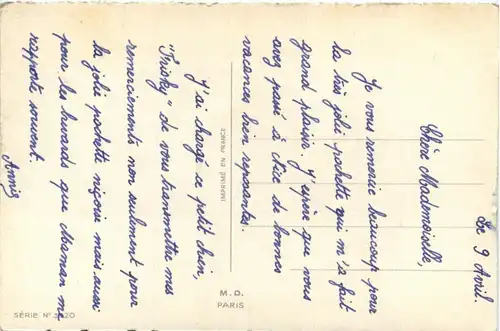 Le 9 Avril.
Chère Mademoiselle,
Je vous remercie beaucoup pour
la très jolie pochette qui m'a fait
grand plaisir. J'espère que vous
avez passé à de bonnes
vacances bien reposantes.
J'ai chargé ce petit chien,
"Frisky" de vous transmettre mes
remerciements non seulement pour
la jolie pochette niçoise mais aussi
pour les buvards que Maman me
rapporte souvent.
Annie
IMPRIMÉ EN FRANCE
M. D.
PARIS
SÉRIE N°